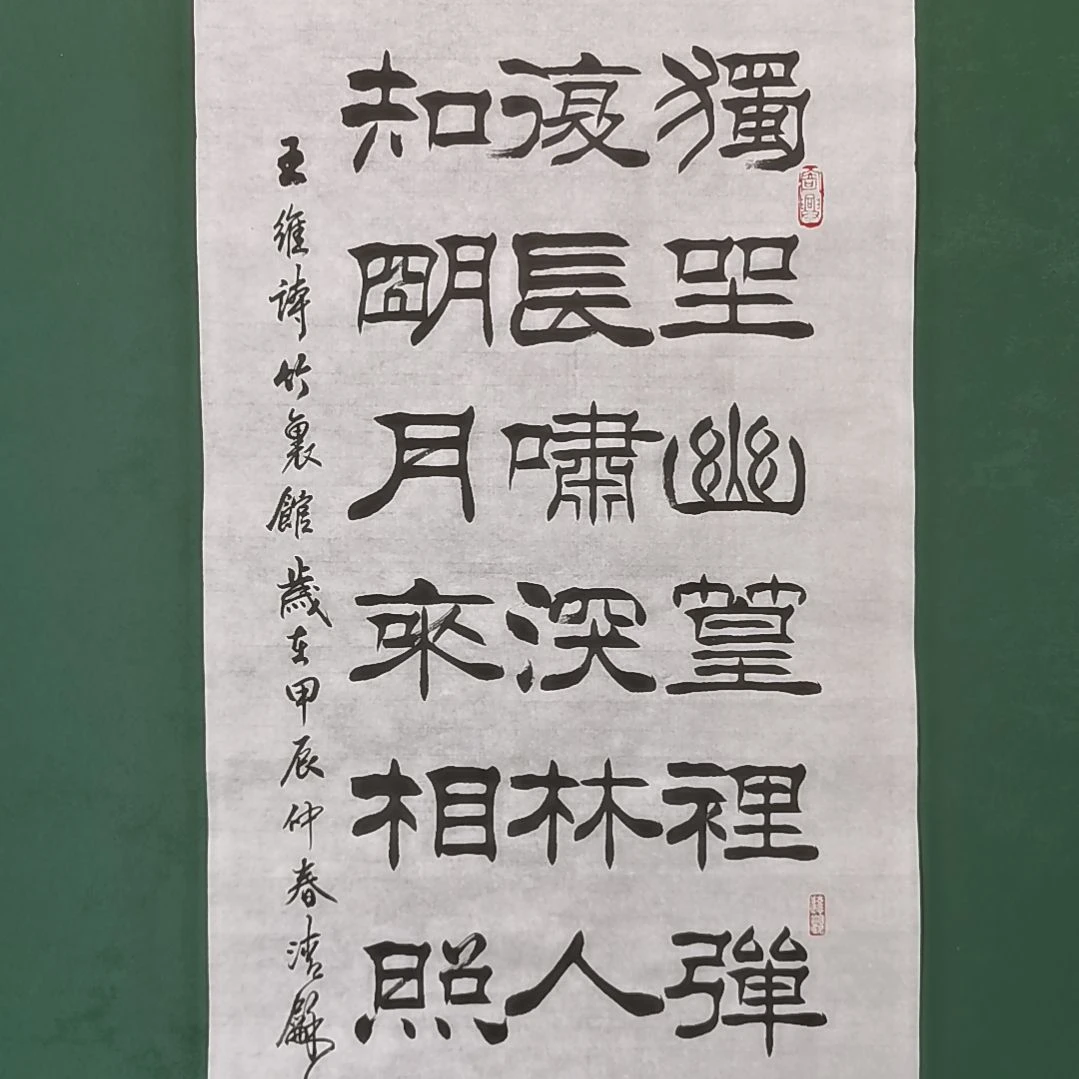 獨坐幽篁裡彈
復長嘯深林人
知朙月來相照
王維詩竹裏館歲在甲辰仲春清龢